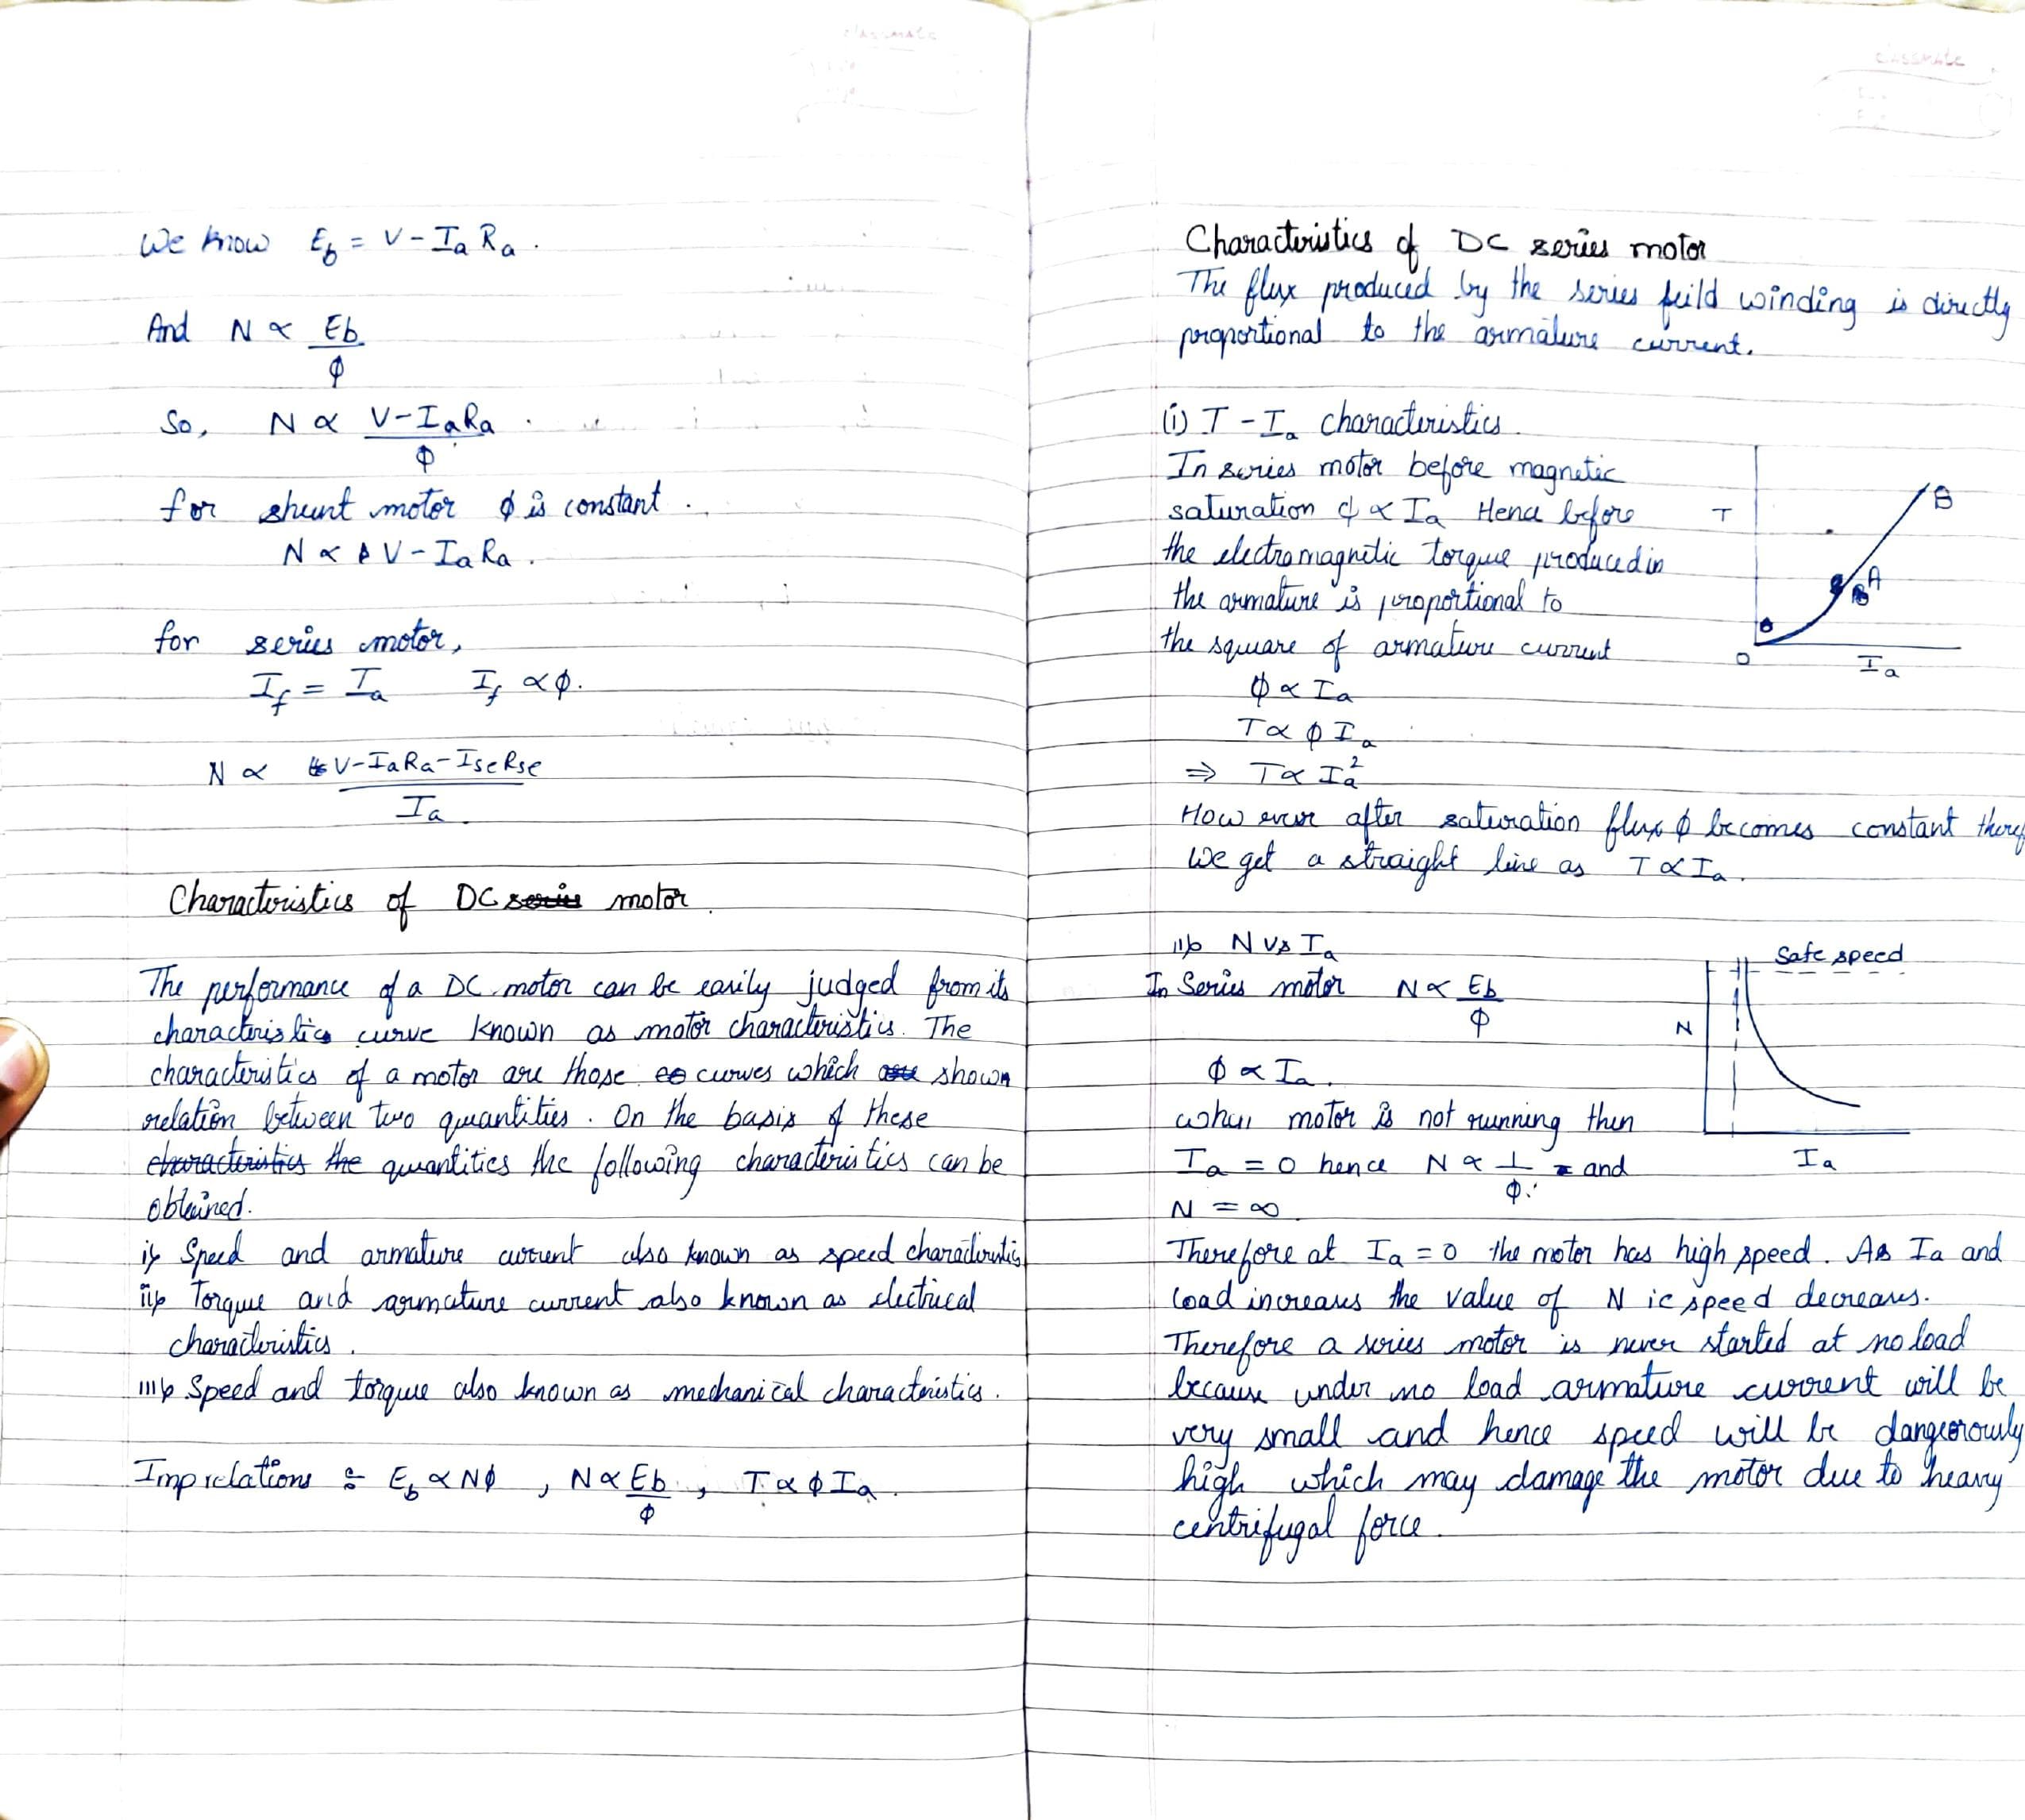 classmate
We know E_b = V - I_a R_a .
And N ∝ Eb
ϕ
So, N ∝ V - I_a R_a
ϕ
for shunt motor ϕ is constant .
N ∝ V - I_a R_a .
for series motor,
I_f = I_a I_f ∝ ϕ.
N ∝ V - I_a R_a - I_se R_se
I_a
Characteristics of DC series motor
The performance of a DC motor can be easily judged from its
characteristics curve known as motor characteristics. The
characteristics of a motor are those curves which shown
relation between two quantities. On the basis of these
characteristics the quantities the following characteristics can be
obtained.
i) Speed and armature current also known as speed characteristic
ii) Torque and armature current also known as electrical
characteristics.
iii) Speed and torque also known as mechanical characteristics.
Imp relations : E_b ∝ Nϕ , N ∝ Eb , T ∝ ϕ I_a .
ϕ
classmate
Characteristics of DC series motor
The flux produced by the series feild winding is directly
proportional to the armature current.
(i) T - I_a characteristics
In series motor before magnetic
saturation ϕ ∝ I_a Hence before
the electromagnetic torque produced in
the armature is proportional to
the square of armature current
T
B
A
O
I_a
ϕ ∝ I_a
T ∝ ϕ I_a
⇒ T ∝ I_a²
How ever after saturation flux ϕ becomes constant theref
we get a straight line as T ∝ I_a .
ii) N vs I_a
In Series motor N ∝ Eb
ϕ
Safe speed
N
I_a
ϕ ∝ I_a .
when motor is not running then
I_a = 0 hence N ∝ 1 and
ϕ
N = ∞
Therefore at I_a = 0 the motor has high speed. As I_a and
load increases the value of N ie speed decreases.
Therefore a series motor is never started at no load
because under no load armature current will be
very small and hence speed will be dangerously
high which may damage the motor due to heavy
centrifugal force.